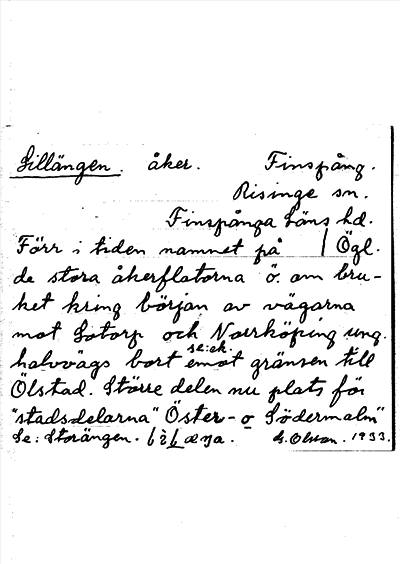 Lillängen. åker. Finspång.
Risinge sn.
Finspånga Läns hd.
Förr i tiden namnet på / Ögl.
de stora åkerflatorna ö. om bru-
ket kring början av vägarna
mot Lotorp och Norrköping ung.
halvvägs bort emot gränsen till
Ölstad. Större delen nu plats för
"stadsdelarna" Öster- o Södermalm"
Se: Storängen. G. Olsson. 1933.